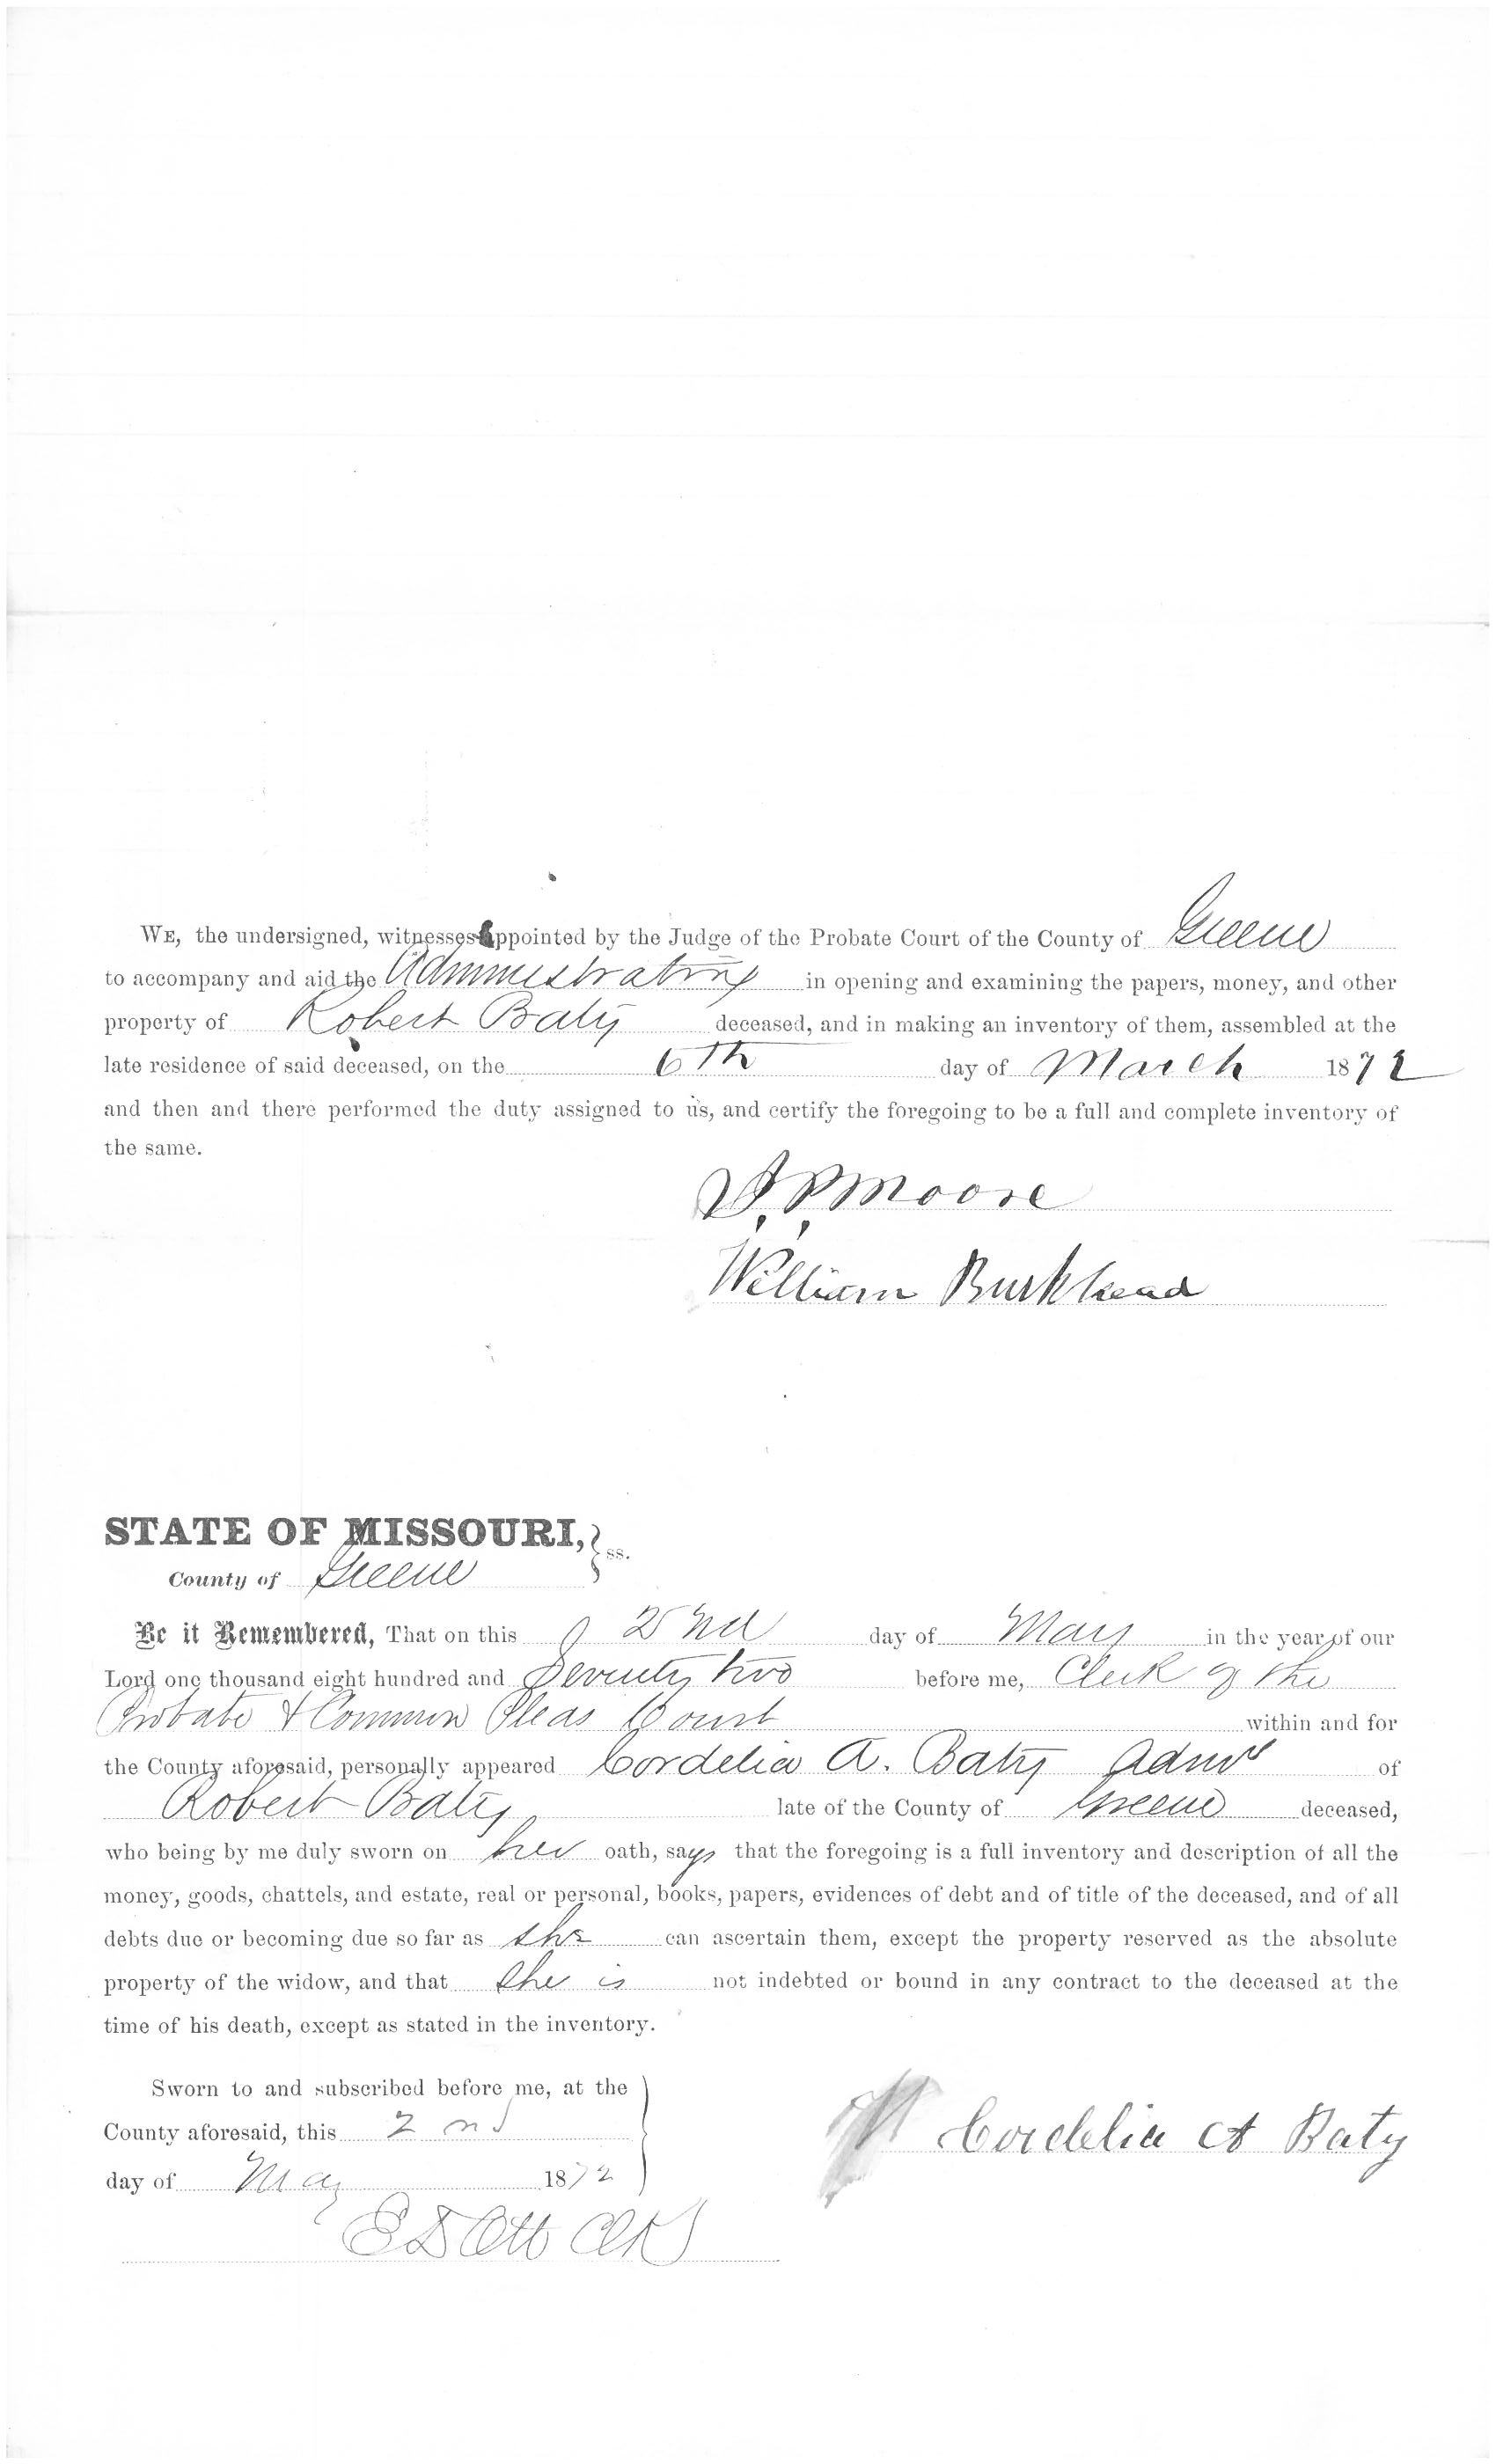 WE, the undersigned, witnesses appointed by the Judge of the Probate Court of the County of Greene
to accompany and aid the Administratrix in opening and examining the papers, money, and other
property of Robert Baty deceased, and in making an inventory of them, assembled at the
late residence of said deceased, on the 6th day of March 1872
and then and there performed the duty assigned to us, and certify the foregoing to be a full and complete inventory of
the same.
P. Moore
William Burkhead
STATE OF MISSOURI, } ss.
County of Greene
Be it Remembered, That on this 2nd day of May in the year of our
Lord one thousand eight hundred and Seventy two before me, Clerk of the
Probate & Common Pleas Court within and for
the County aforesaid, personally appeared Cordelia A. Baty Admx of
Robert Baty late of the County of Greene deceased,
who being by me duly sworn on her oath, says that the foregoing is a full inventory and description of all the
money, goods, chattels, and estate, real or personal, books, papers, evidences of debt and of title of the deceased, and of all
debts due or becoming due so far as she can ascertain them, except the property reserved as the absolute
property of the widow, and that she is not indebted or bound in any contract to the deceased at the
time of his death, except as stated in the inventory.
Sworn to and subscribed before me, at the
County aforesaid, this 2nd
day of May 1872
Cordelia A Baty
E D Ott Clk